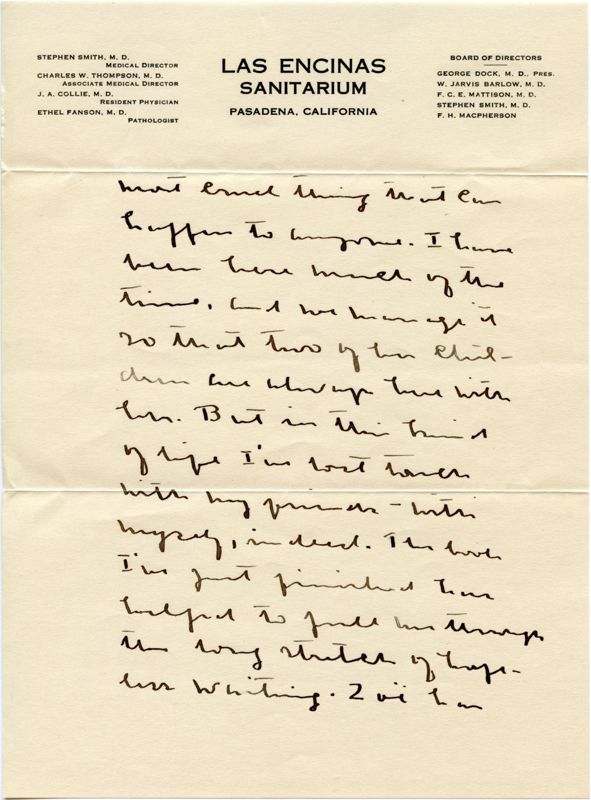 STEPHEN SMITH, M. D.
MEDICAL DIRECTOR
CHARLES W. THOMPSON, M. D.
ASSOCIATE MEDICAL DIRECTOR
J. A. COLLIE, M. D.
RESIDENT PHYSICIAN
ETHEL FANSON, M. D.
PATHOLOGIST
LAS ENCINAS
SANITARIUM
PASADENA, CALIFORNIA
BOARD OF DIRECTORS
GEORGE DOCK, M. D., PRES.
W. JARVIS BARLOW, M. D.
F. C. E. MATTISON, M. D.
STEPHEN SMITH, M. D.
F. H. MACPHERSON
most cruel thing that can
happen to anyone. I have
been here much of the
time, and we manage it
so that two of her chil-
dren are always here with
her. But in this kind
of life I've lost touch
with my friends - with
myself, indeed. The book
I've just finished has
helped to pull me through
the long stretch of hope-
less waiting. Zoë has